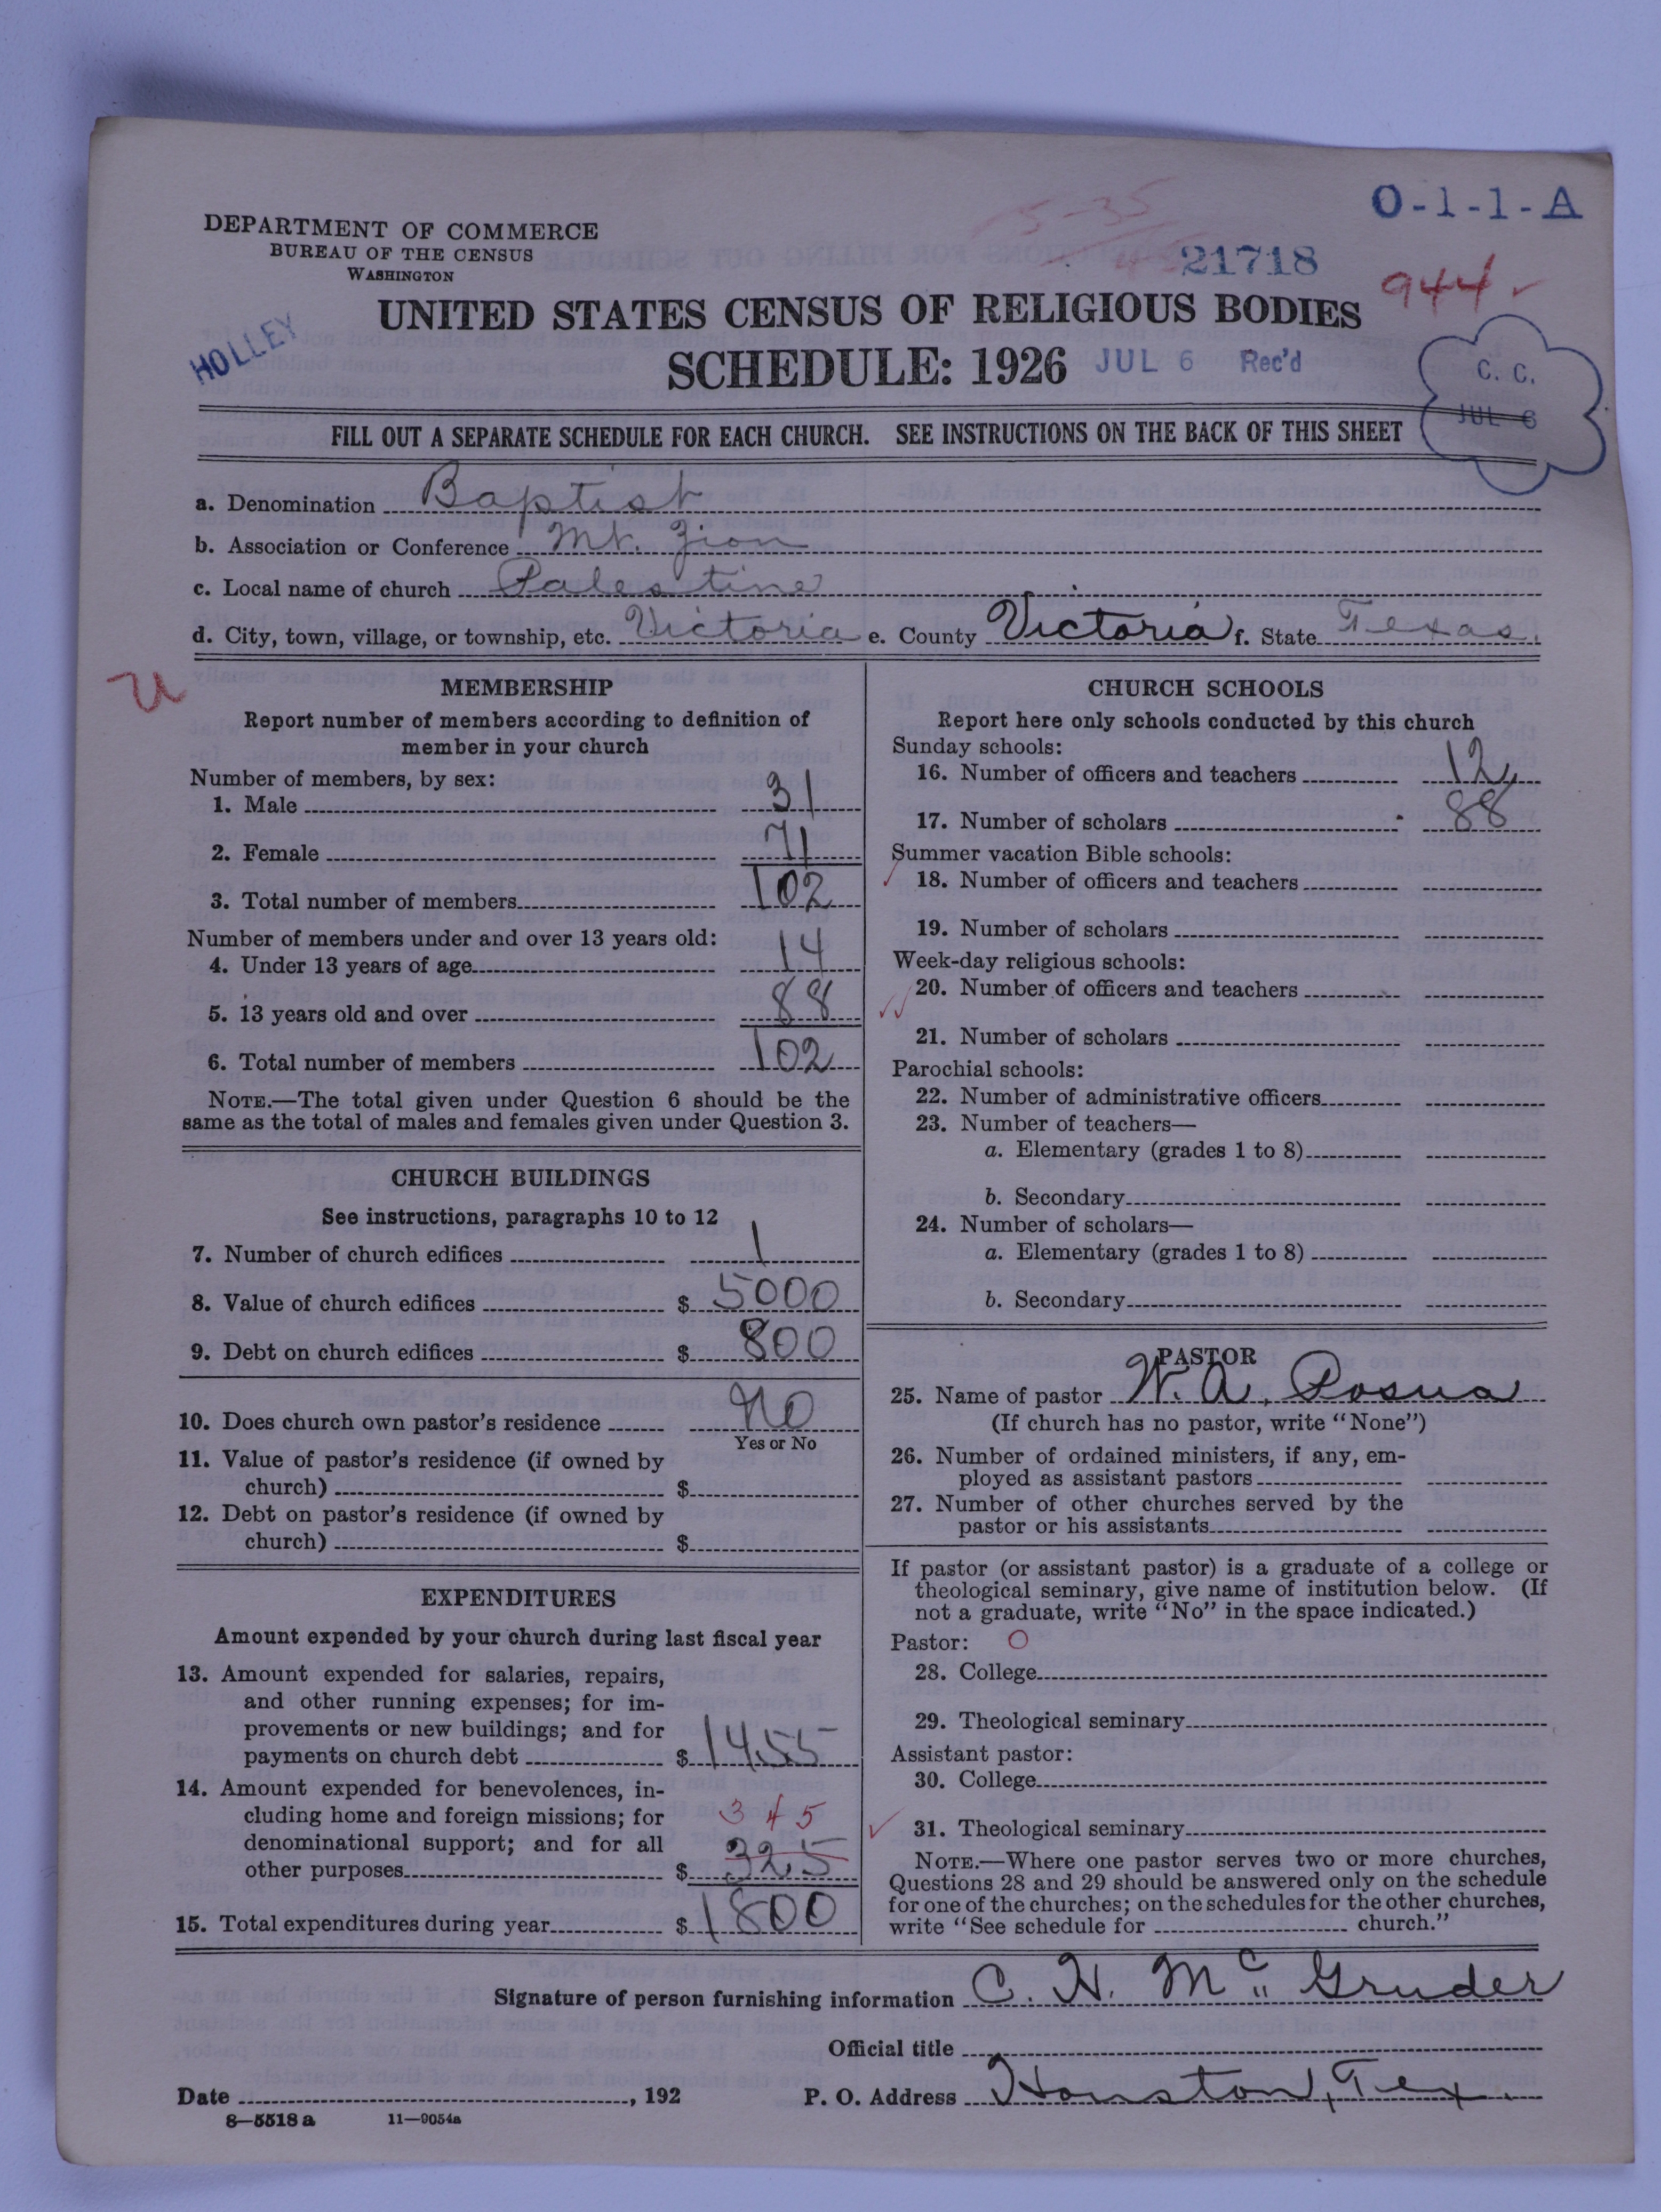 O-1-1-A
DEPARTMENT OF COMMERCE
BUREAU OF THE CENSUS
WASHINGTON
5-35
21718
944 ✓
UNITED STATES CENSUS OF RELIGIOUS BODIES
HOLLEY
SCHEDULE: 1926 JUL 6 Rec'd
C. C.
JUL 6
FILL OUT A SEPARATE SCHEDULE FOR EACH CHURCH. SEE INSTRUCTIONS ON THE BACK OF THIS SHEET
a. Denomination Baptist
b. Association or Conference Mt. Zion
c. Local name of church Palestine
d. City, town, village, or township, etc. Victoria e. County Victoria f. State Texas.
U
MEMBERSHIP
Report number of members according to definition of
member in your church
Number of members, by sex:
1. Male 31
2. Female 71
3. Total number of members 102
Number of members under and over 13 years old:
4. Under 13 years of age 14
5. 13 years old and over 88
6. Total number of members 102
NOTE.—The total given under Question 6 should be the
same as the total of males and females given under Question 3.
CHURCH BUILDINGS
See instructions, paragraphs 10 to 12
7. Number of church edifices 1
8. Value of church edifices $ 5000
9. Debt on church edifices $ 800
10. Does church own pastor's residence No
Yes or No
11. Value of pastor's residence (if owned by
church) $
12. Debt on pastor's residence (if owned by
church) $
EXPENDITURES
Amount expended by your church during last fiscal year
13. Amount expended for salaries, repairs,
and other running expenses; for im-
provements or new buildings; and for
payments on church debt $ 1455
14. Amount expended for benevolences, in-
cluding home and foreign missions; for 345
denominational support; and for all
other purposes $ 325
15. Total expenditures during year $ 1800
CHURCH SCHOOLS
Report here only schools conducted by this church
Sunday schools:
16. Number of officers and teachers 12
17. Number of scholars 88
Summer vacation Bible schools:
18. Number of officers and teachers
19. Number of scholars
Week-day religious schools:
20. Number of officers and teachers
21. Number of scholars
Parochial schools:
22. Number of administrative officers
23. Number of teachers—
a. Elementary (grades 1 to 8)
b. Secondary
24. Number of scholars—
a. Elementary (grades 1 to 8)
b. Secondary
PASTOR
25. Name of pastor W. A. Posua
(If church has no pastor, write "None")
26. Number of ordained ministers, if any, em-
ployed as assistant pastors
27. Number of other churches served by the
pastor or his assistants
If pastor (or assistant pastor) is a graduate of a college or
theological seminary, give name of institution below. (If
not a graduate, write "No" in the space indicated.)
Pastor: O
28. College
29. Theological seminary
Assistant pastor:
30. College
31. Theological seminary
NOTE.—Where one pastor serves two or more churches,
Questions 28 and 29 should be answered only on the schedule
for one of the churches; on the schedules for the other churches,
write "See schedule for church."
Signature of person furnishing information C. H. McGruder
Official title
Date , 192 P. O. Address Houston, Tex.
8—5518 a 11—9054a